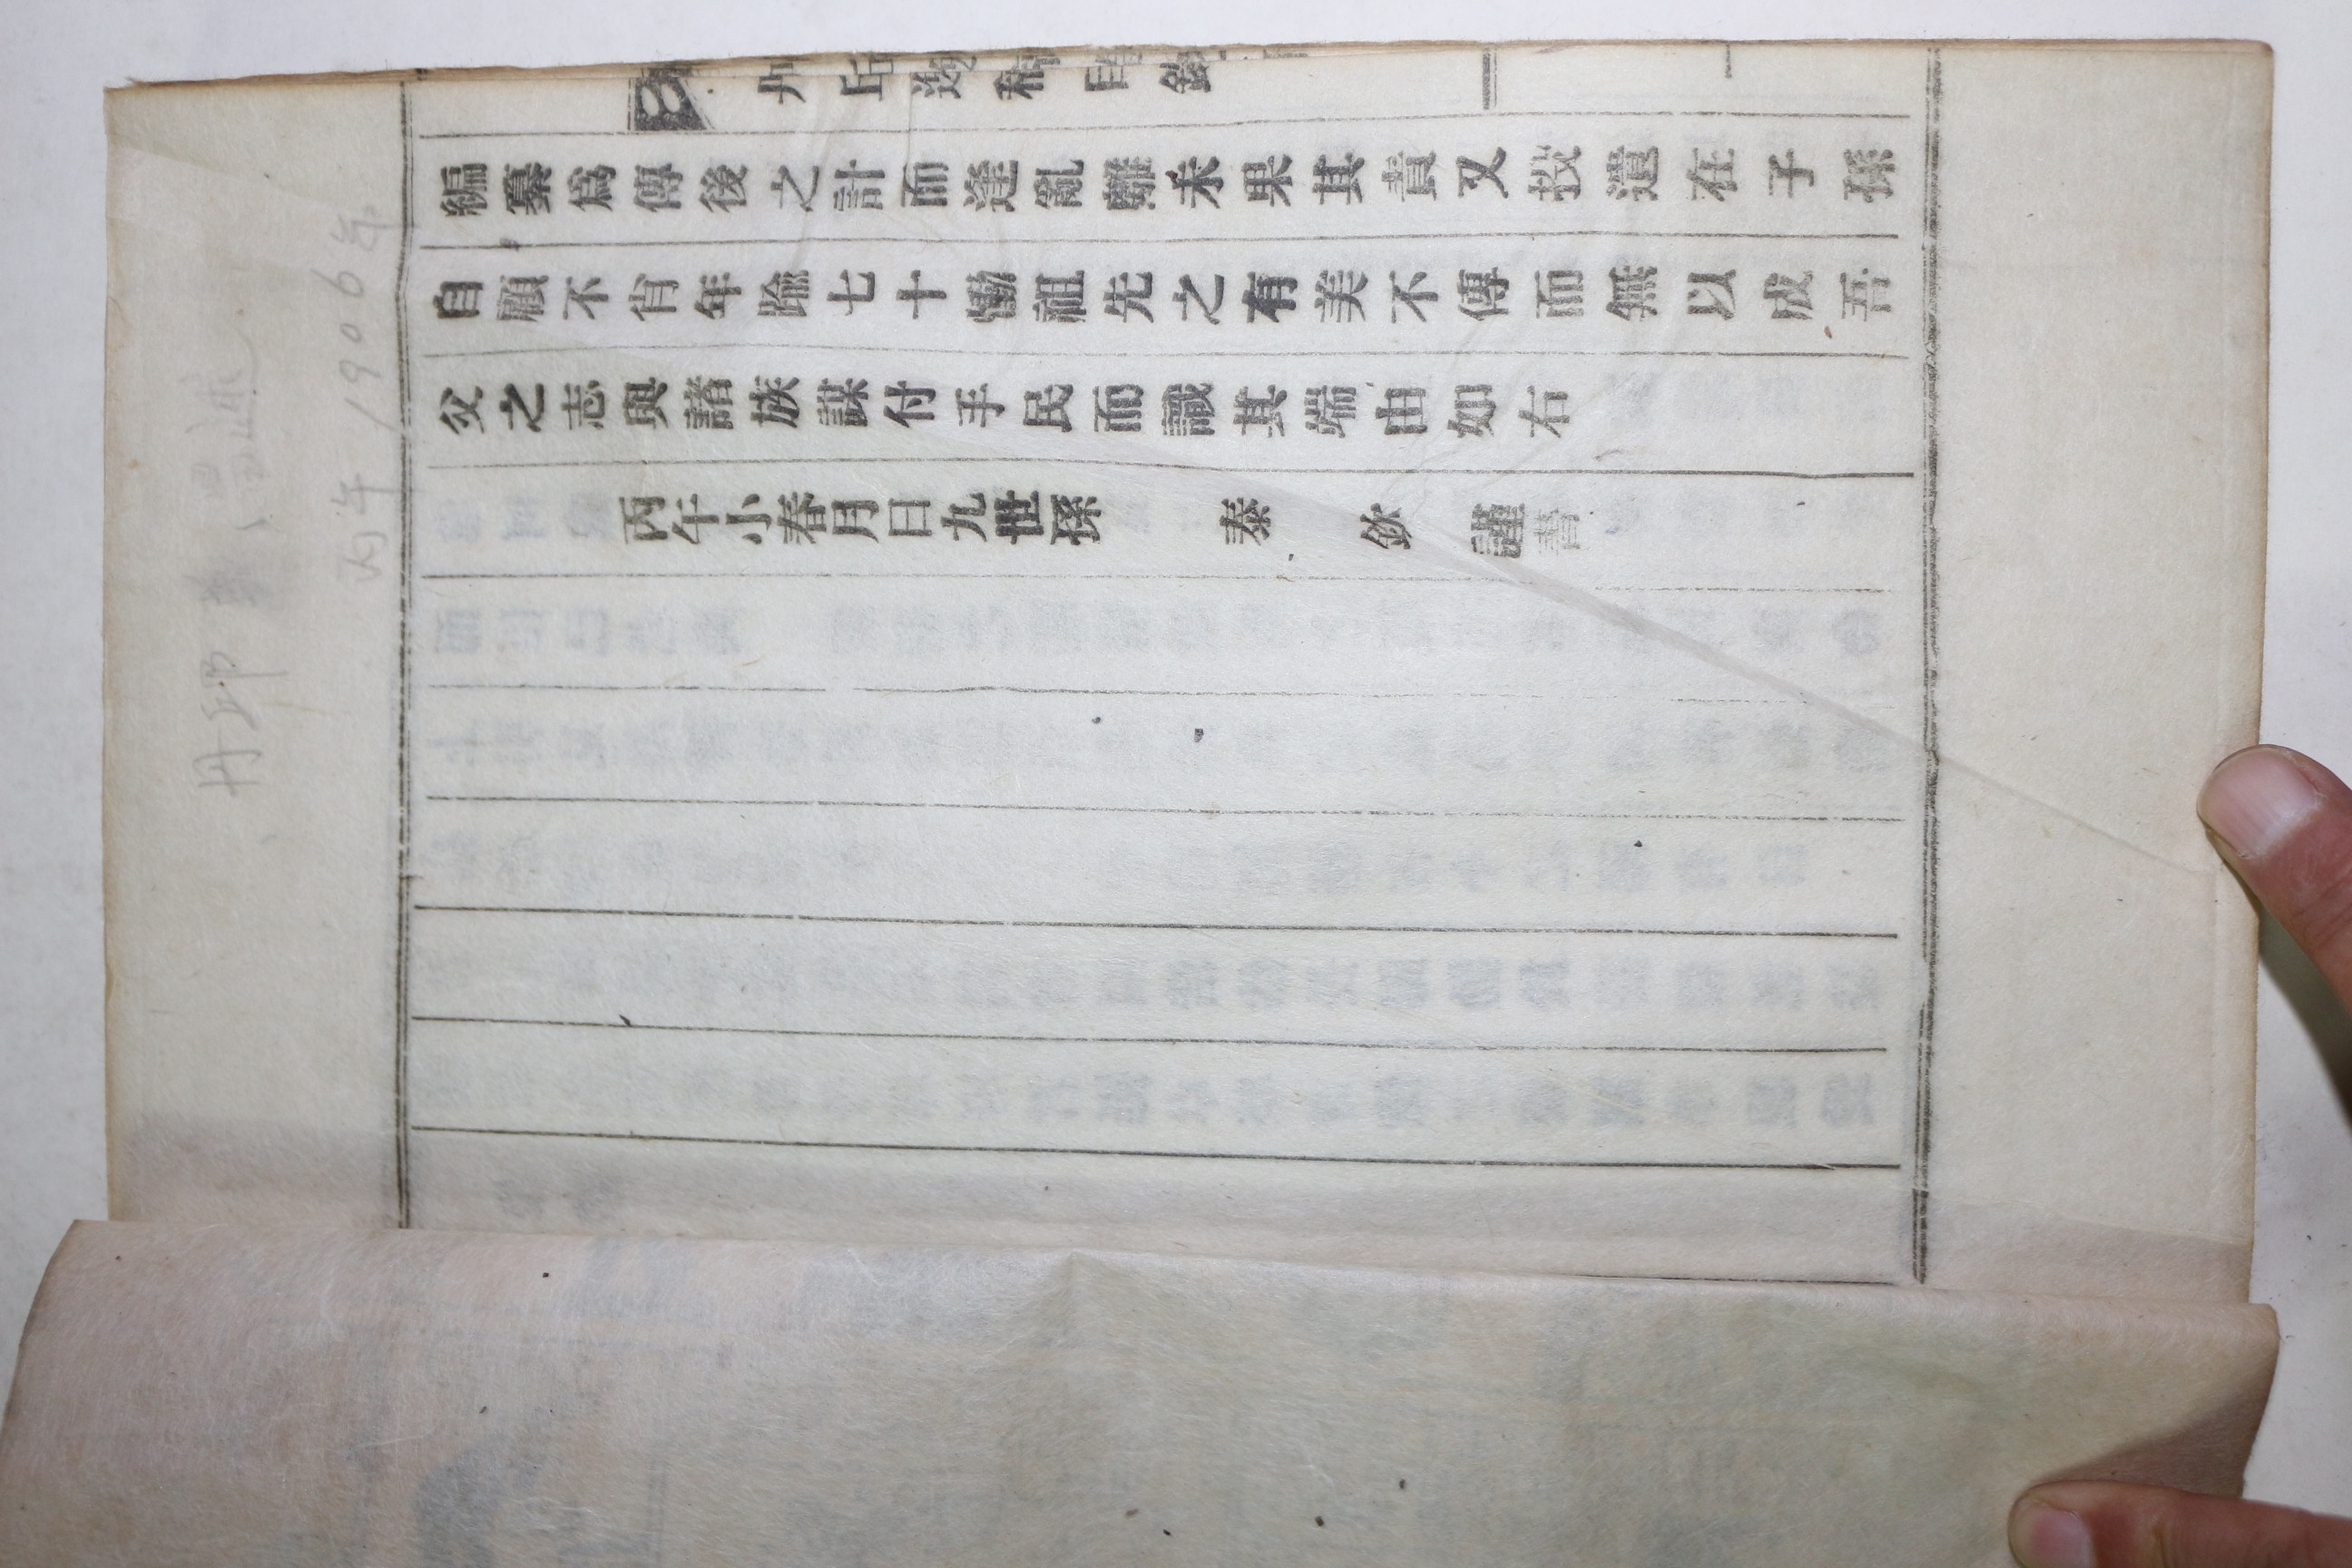 丹邱 昌述
丙午 1906年
丹丘逸稿目錄
編纂爲傳後之計而逢亂離未果其責又投遺在子孫
自顧不肖年踰七十慟祖先之有美不傳而無以成吾
父之志與諸族謀付手民而識其端由如右
丙午小春月日九世孫 泰 欽 謹書